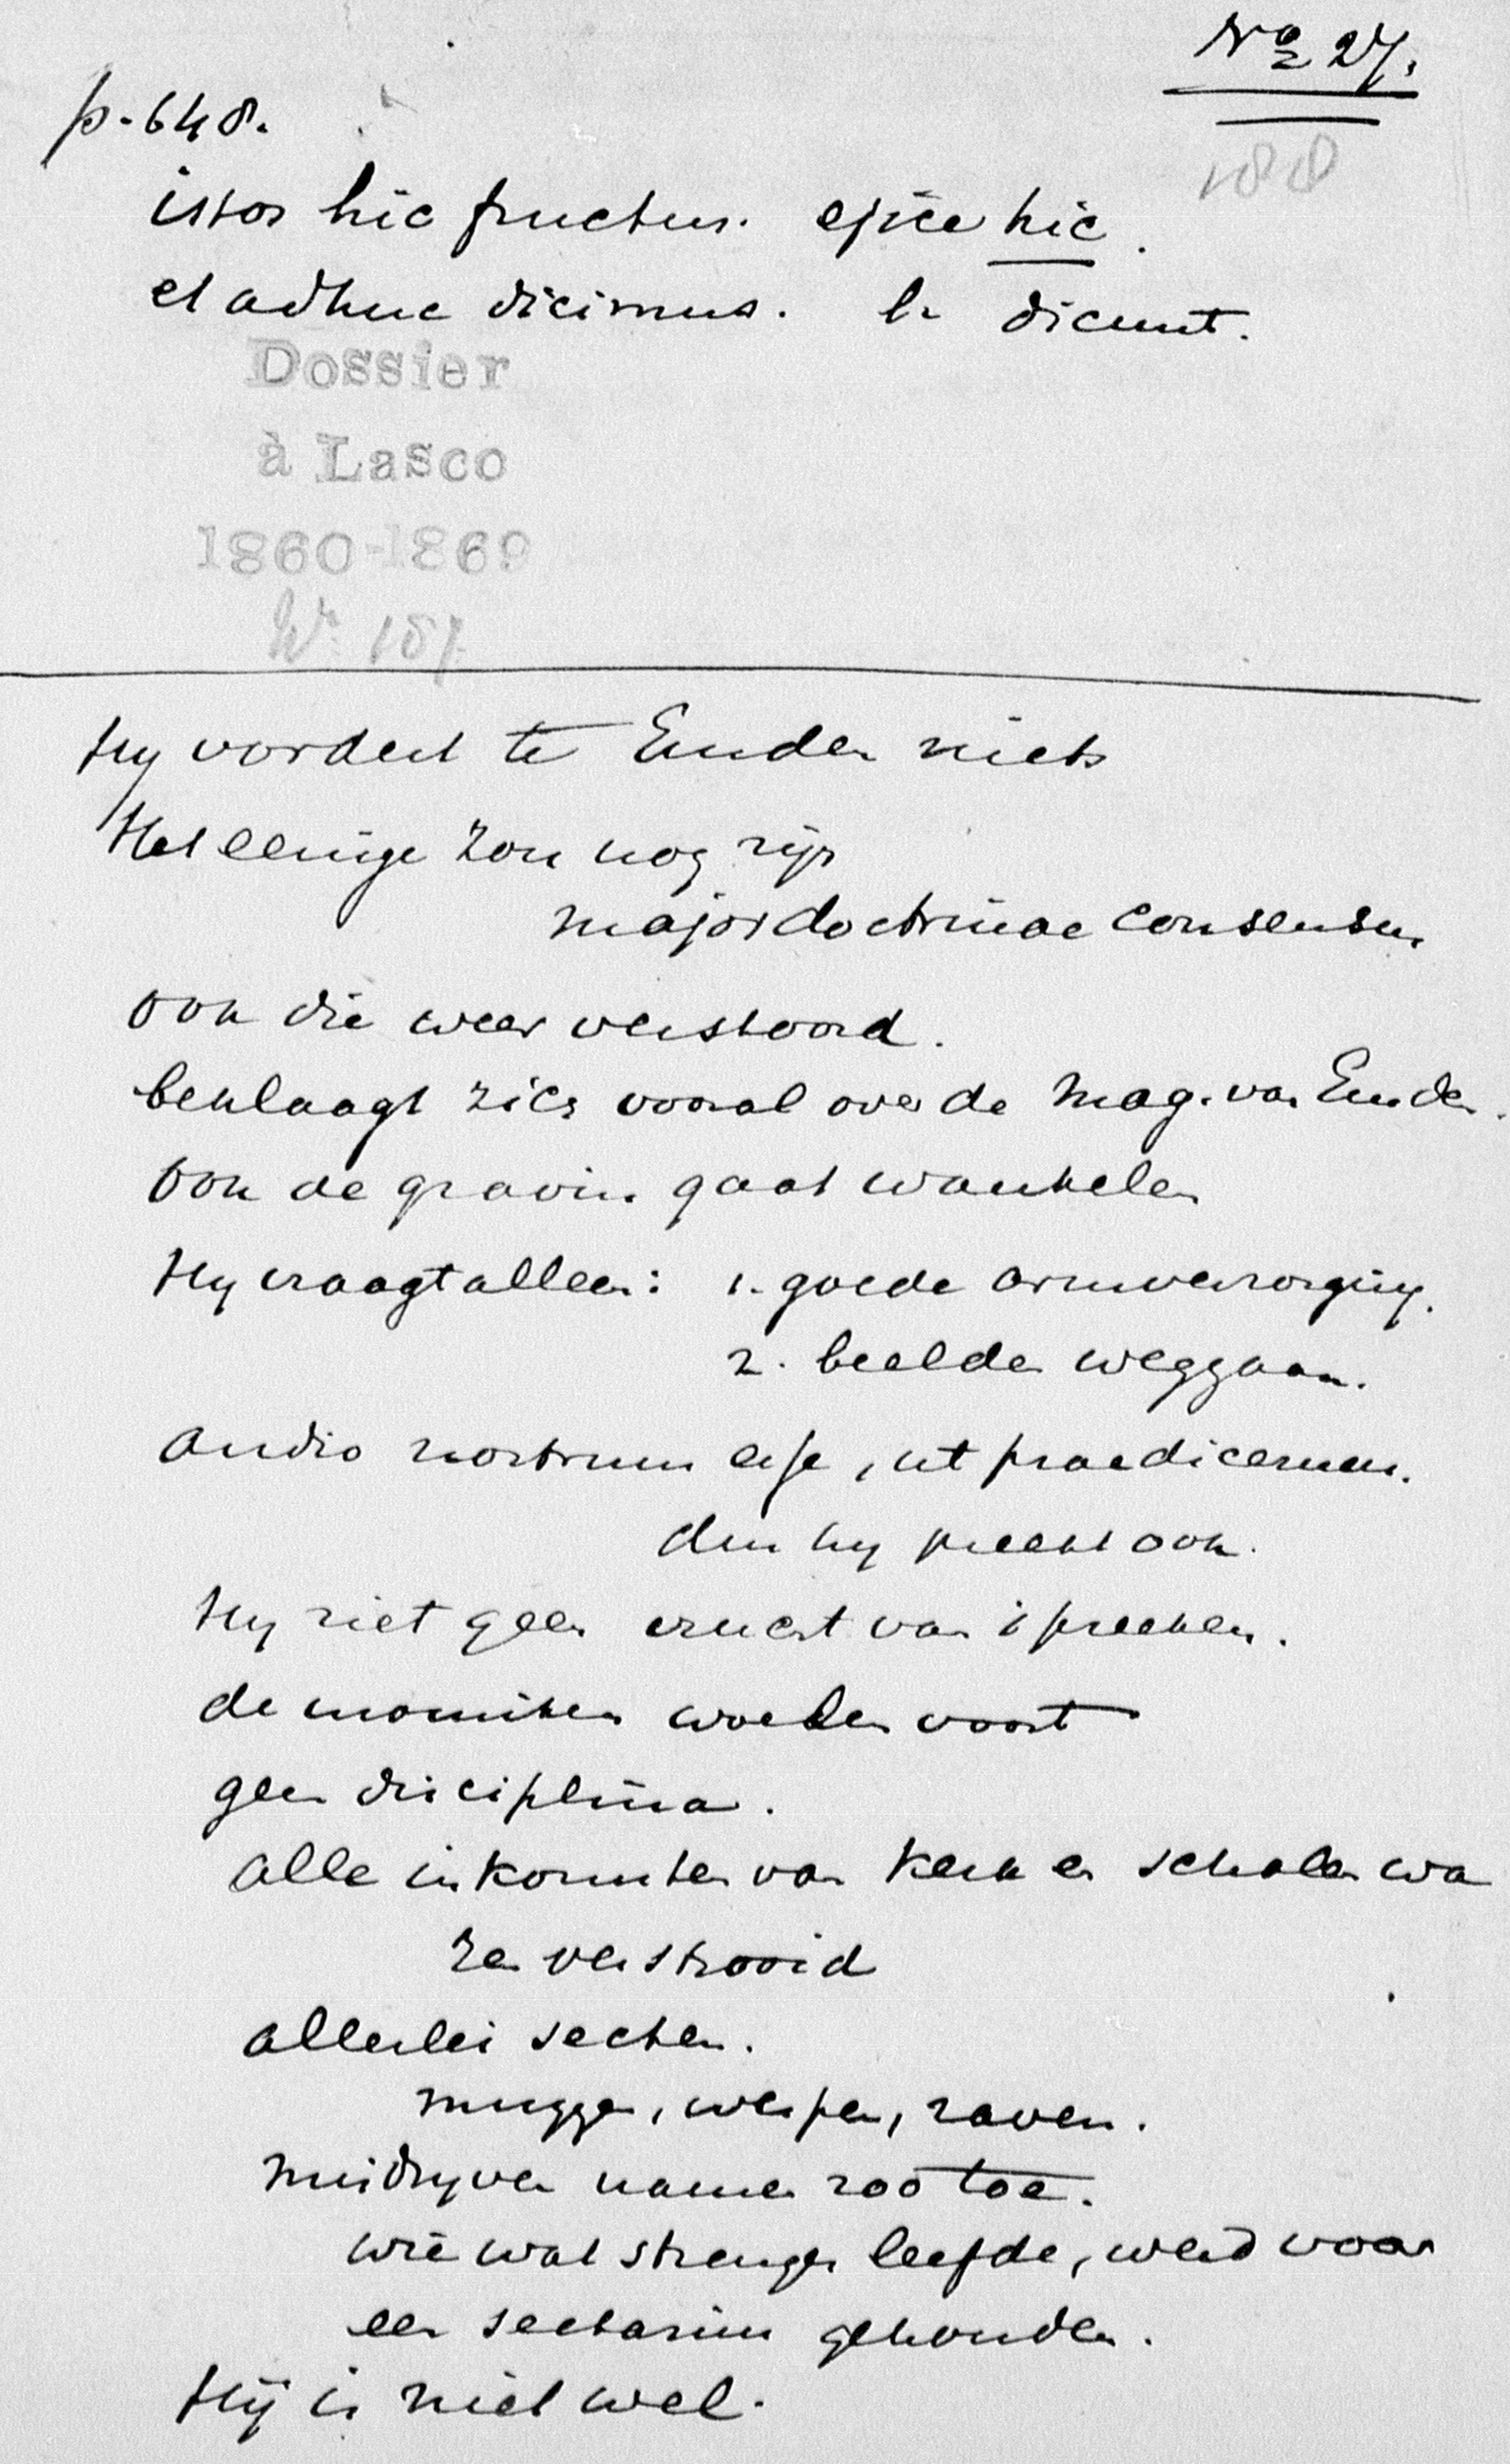 No 27.
p. 648.
188
istos hic fructus. ejice hic.
et adhuc dicimus. l. dicunt.
Dossier
à Lasco
1860-1869
No. 187
Hy vordert te Emden niets
Het eenige zou nog zijn
major doctrinae consensus
ook die weer verstoord.
beklaagt zich vooral over de mag. van Emden.
Ook de gravin gaat wankelen
Hy vraagt alleen: 1. goede armverzorging.
2. beelden weggaan.
Audio nostrum esse, ut praedicemus.
dus hy preekt ook.
Hy ziet geen vrucht van 't preeken.
de monniken woelen voort
geen disciplina.
alle inkomsten van Kerk en scholen wa
ren verstrooid
allerlei secten.
muggen, wespen, raven.
misdryven namen zoo toe.
wie wat strenger leefde, werd voor
een sectarius gehouden.
Hij is niet wel.